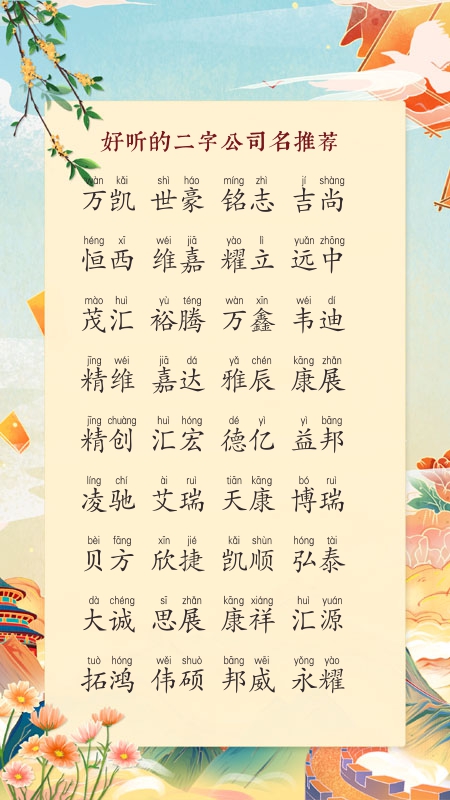 好听的二字公司名推荐
wàn kǎi shì háo míng zhì jí shàng
万凯 世豪 铭志 吉尚
héng xī wéi jiā yào lì yuǎn zhōng
恒西 维嘉 耀立 远中
mào huì yù téng wàn xīn wéi dí
茂汇 裕腾 万鑫 韦迪
jīng wéi jiā dá yǎ chén kāng zhǎn
精维 嘉达 雅辰 康展
jīng chuàng huì hóng dé yì yì bāng
精创 汇宏 德亿 益邦
líng chí ài ruì tiān kāng bó ruì
凌驰 艾瑞 天康 博瑞
bèi fāng xīn jié kǎi shùn hóng tài
贝方 欣捷 凯顺 弘泰
dà chéng sī zhǎn kāng xiáng huì yuán
大诚 思展 康祥 汇源
tuò hóng wěi shuò bāng wēi yǒng yào
拓鸿 伟硕 邦威 永耀